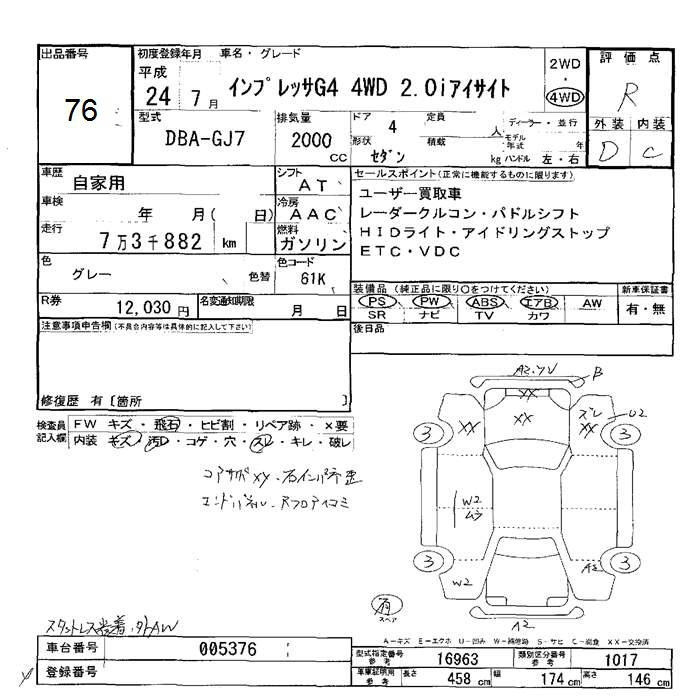 出品番号
76
初度登録年月
平成
24 7月
車名・グレード
インプレッサG4 4WD 2.0iアイサイト
2WD
・
4WD
評価点
R
外装 内装
D C
型式
DBA-GJ7
排気量
2000
CC
ドア
4
形状
セダン
定員
人
積載
kg
ディーラー・並行
モデル
年式 年
ハンドル 左・右
車歴
自家用
シフト
AT
車検
年 月( 日)
冷房
AAC
走行
7万3千882 km
燃料
ガソリン
色
グレー
色替
色コード
61K
R券
12,030円
名変通知期限
月 日
セールスポイント(正常に機能するものに限ります)
ユーザー買取車
レーダークルコン・パドルシフト
HIDライト・アイドリングストップ
ETC・VDC
装備品(純正品に限り〇をつけてください)
PS PW ABS エアB AW
SR ナビ TV カワ
新車保証書
有・無
後日品
注意事項申告欄(不具合内容等は具体的に記入して下さい)
修復歴 有[箇所 ]
検査員
記入欄
FW キズ・飛石・ヒビ割・リペア跡・×要
内装 キズ・汚D・コゲ・穴・スレ・キレ・破レ
コアサポXX・右インパネ歪
エンドパネル・Rフロアイコミ
A2.YV
B
XX
XX
XX
ズレ
XX
U2
3
3
W2
ムラ
3
3
W2
A2
有
スペア
A2
スタットレス装着・外AW
A-キズ E-エクボ U-凹み W-補修跡 S-サビ C-腐食 XX-交換済
車台番号
005376
登録番号
型式指定番号
参考
16963
類別区分番号
参考
1017
車庫証明用
参考
長さ
458 cm
幅
174 cm
高さ
146 cm